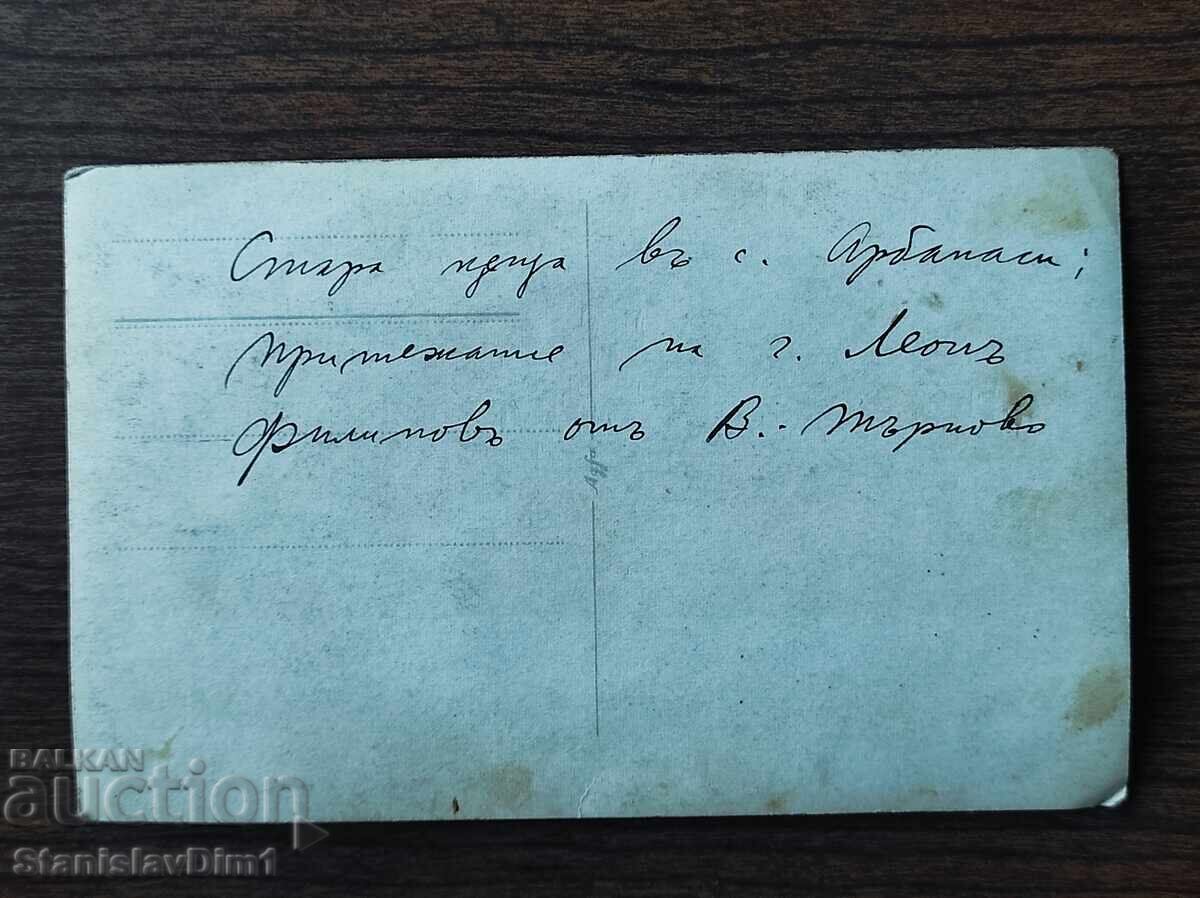 Стара къща въ с. Арбанаси;
притежание на г. Леонъ
Филиповъ отъ В.-Търново
BALKAN
auction
StanislavDim1